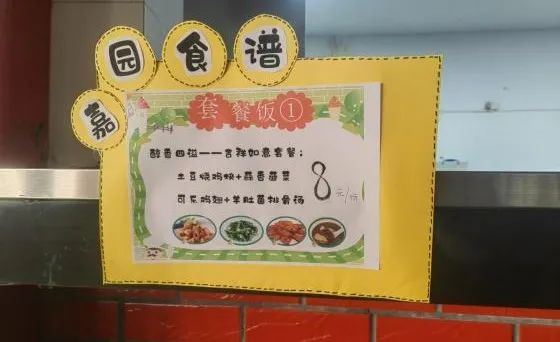 嘉园食谱
套餐饭①
醇香四溢——吉祥如意套餐：
土豆烧鸡块+蒜香菠菜
可乐鸡翅+羊肚菌排骨汤
8元/份